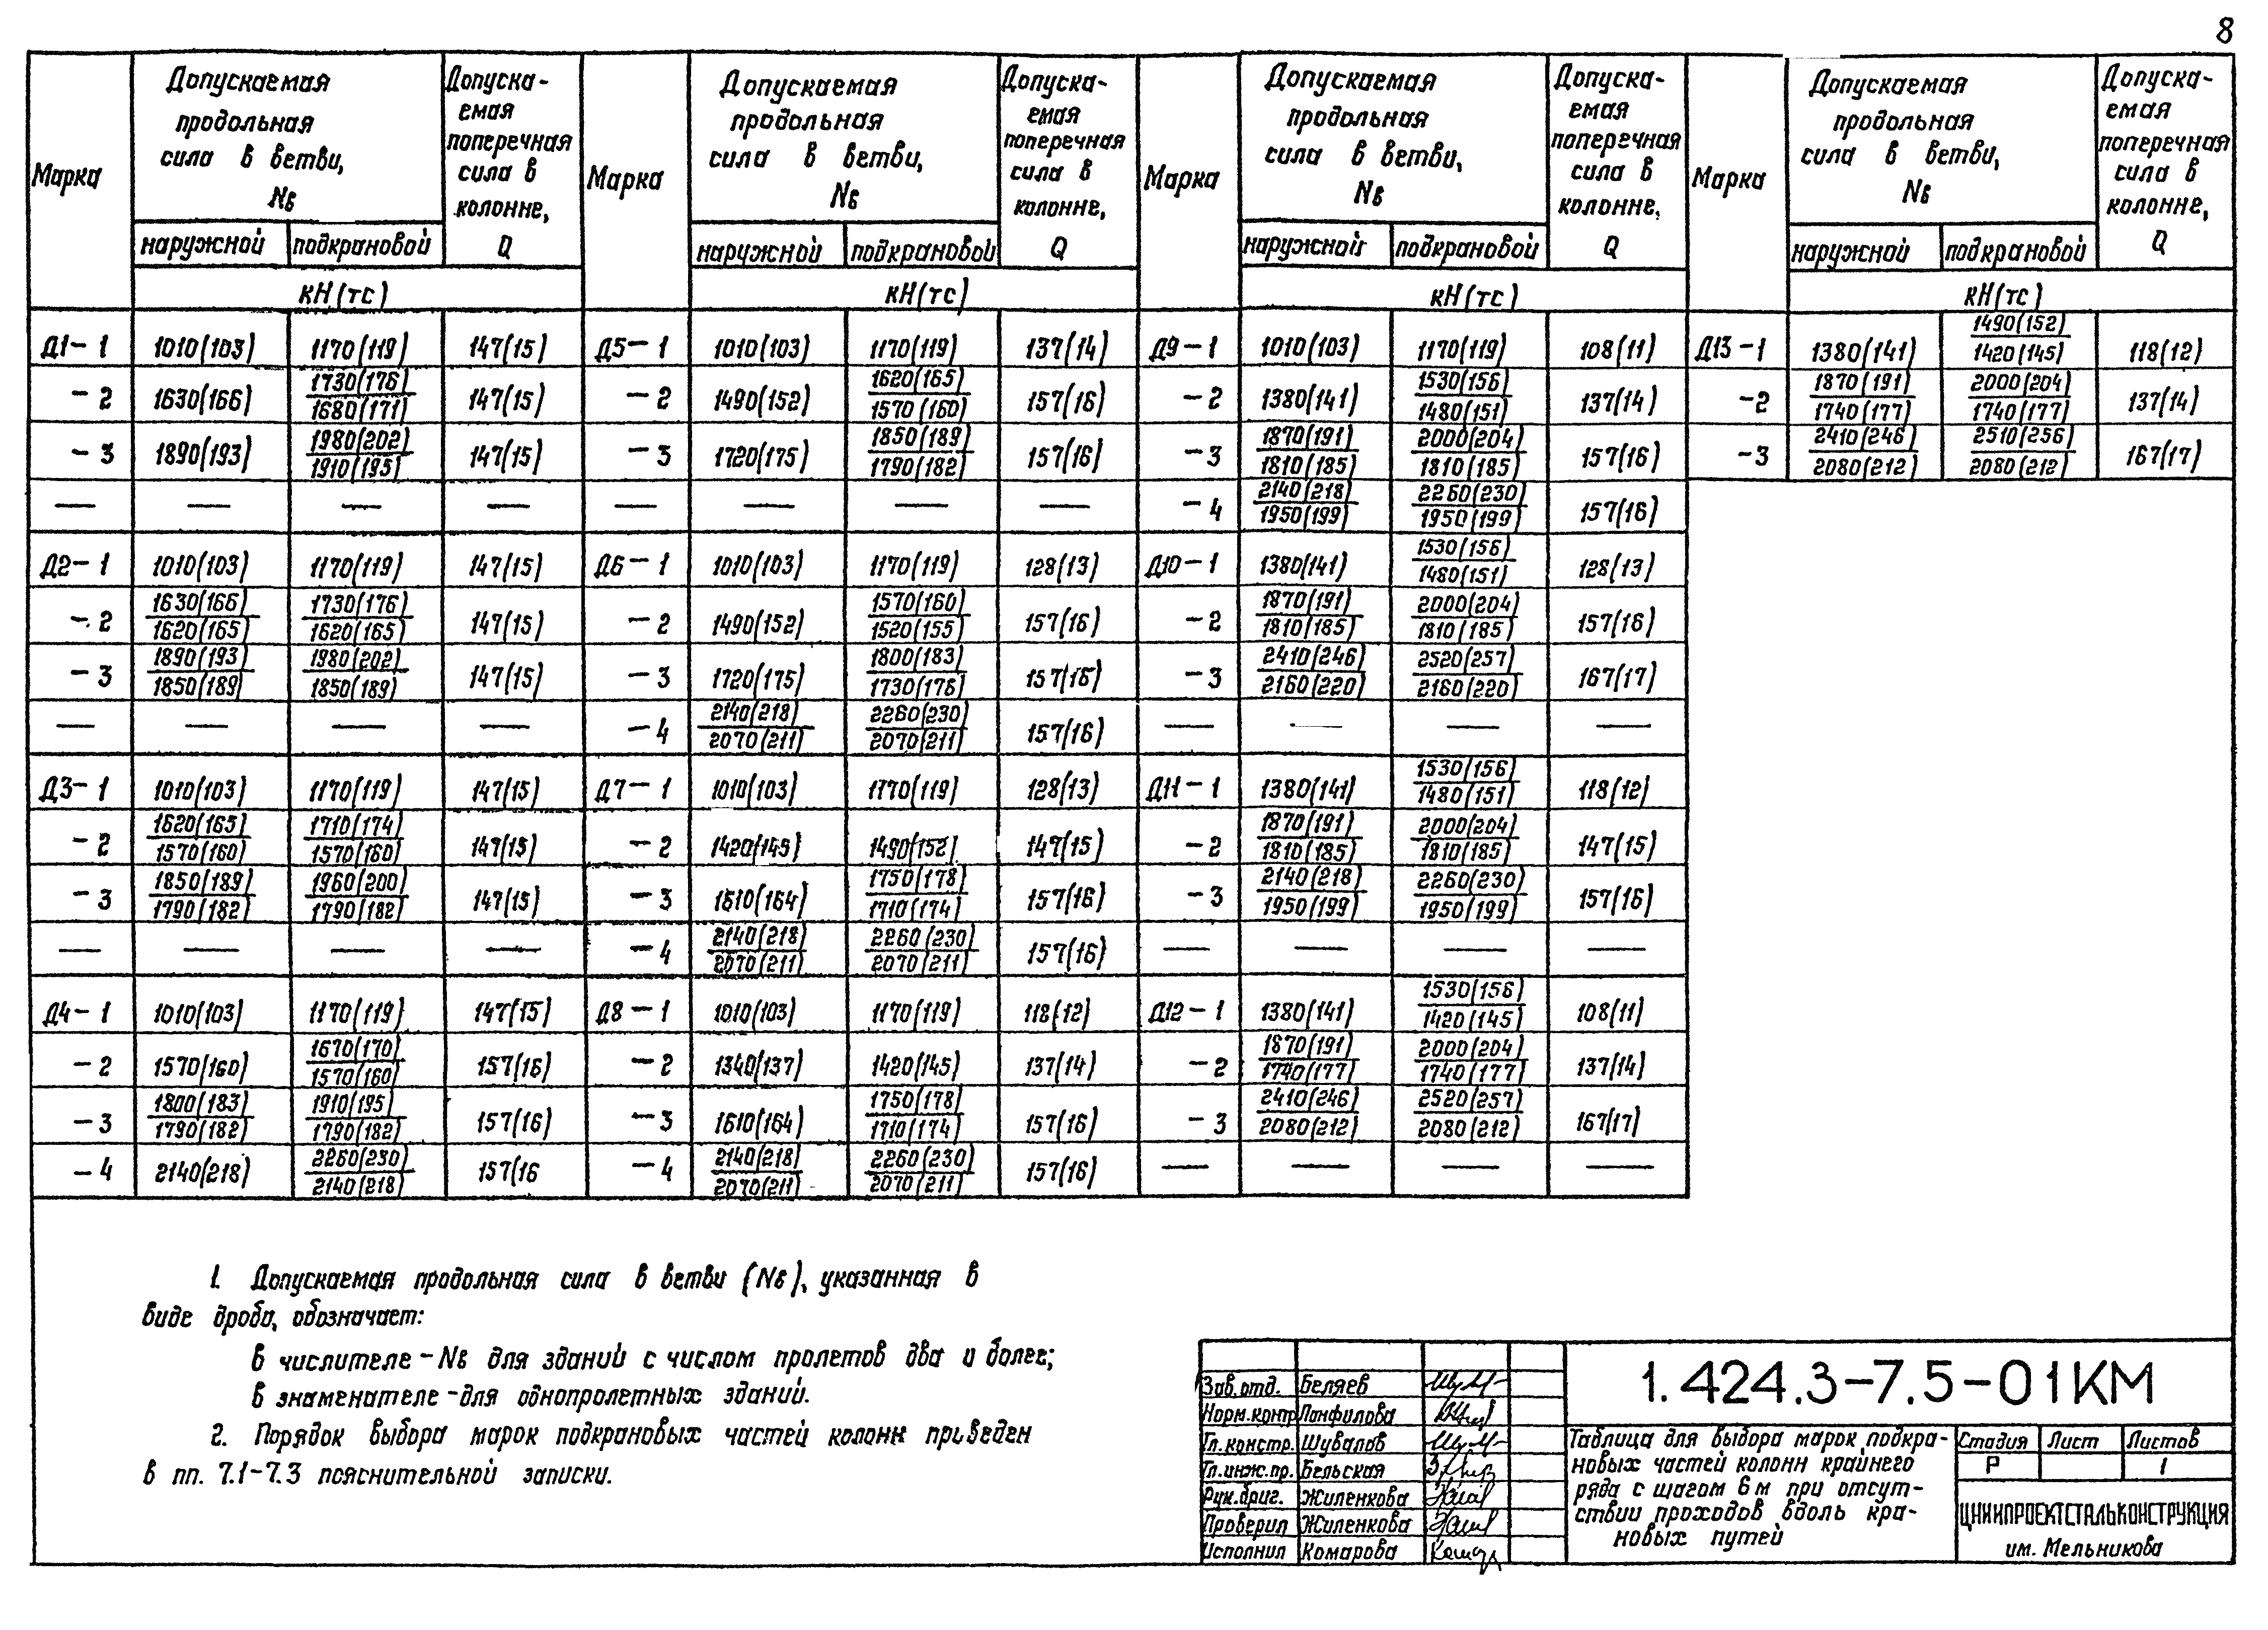 8
Марка
Допускаемая
продольная
сила в ветви,
Nв
Допуска-
емая
поперечная
сила в
колонне,
Q
Марка
Допускаемая
продольная
сила в ветви,
Nв
Допуска-
емая
поперечная
сила в
колонне,
Q
Марка
Допускаемая
продольная
сила в ветви,
Nв
Допуска-
емая
поперечная
сила в
колонне,
Q
Марка
Допускаемая
продольная
сила в ветви,
Nв
Допуска-
емая
поперечная
сила в
колонне,
Q
наружной подкрановой наружной подкрановой наружной подкрановой наружной подкрановой
кН(тс) кН(тс) кН(тс) кН(тс)
Д1-1 1010(103) 1170(119) 147(15)
-2 1630(166) 1730(176)/1680(171) 147(15)
-3 1890(193) 1980(202)/1910(195) 147(15)
— — — —
Д2-1 1010(103) 1170(119) 147(15)
-2 1630(166)/1620(165) 1730(176)/1620(165) 147(15)
-3 1890(193)/1850(189) 1980(202)/1850(189) 147(15)
— — — —
Д3-1 1010(103) 1170(119) 147(15)
-2 1620(165)/1570(160) 1710(174)/1570(160) 147(15)
-3 1850(189)/1790(182) 1960(200)/1790(182) 147(15)
— — — —
Д4-1 1010(103) 1170(119) 147(15)
-2 1570(160) 1670(170)/1570(160) 157(16)
-3 1800(183)/1790(182) 1910(195)/1790(182) 157(16)
-4 2140(218) 2260(230)/2140(218) 157(16
Д5-1 1010(103) 1170(119) 137(14)
-2 1490(152) 1620(165)/1570(160) 157(16)
-3 1720(175) 1850(189)/1790(182) 157(16)
— — — —
Д6-1 1010(103) 1170(119) 128(13)
-2 1490(152) 1570(160)/1520(155) 157(16)
-3 1720(175) 1800(183)/1730(176) 157(16)
-4 2140(218)/2070(211) 2260(230)/2070(211) 157(16)
Д7-1 1010(103) 1170(119) 128(13)
-2 1420(145) 1490(152) 147(15)
-3 1610(164) 1750(178)/1710(174) 157(16)
-4 2140(218)/2070(211) 2260(230)/2070(211) 157(16)
Д8-1 1010(103) 1170(119) 118(12)
-2 1340(137) 1420(145) 137(14)
-3 1610(164) 1750(178)/1710(174) 157(16)
-4 2140(218)/2070(211) 2260(230)/2070(211) 157(16)
Д9-1 1010(103) 1170(119) 108(11)
-2 1380(141) 1530(156)/1480(151) 137(14)
-3 1870(191)/1810(185) 2000(204)/1810(185) 157(16)
-4 2140(218)/1950(199) 2260(230)/1950(199) 157(16)
Д10-1 1380(141) 1530(156)/1480(151) 128(13)
-2 1870(191)/1810(185) 2000(204)/1810(185) 157(16)
-3 2410(246)/2160(220) 2520(257)/2160(220) 167(17)
— — — —
Д11-1 1380(141) 1530(156)/1480(151) 118(12)
-2 1870(191)/1810(185) 2000(204)/1810(185) 147(15)
-3 2140(218)/1950(199) 2260(230)/1950(199) 157(16)
— — — —
Д12-1 1380(141) 1530(156)/1420(145) 108(11)
-2 1870(191)/1740(177) 2000(204)/1740(177) 137(14)
-3 2410(246)/2080(212) 2520(257)/2080(212) 167(17)
— — — —
Д13-1 1380(141) 1490(152)/1420(145) 118(12)
-2 1870(191)/1740(177) 2000(204)/1740(177) 137(14)
-3 2410(246)/2080(212) 2510(256)/2080(212) 167(17)
1. Допускаемая продольная сила в ветви (Nв), указанная в
виде дроби, обозначает:
в числителе - Nв для зданий с числом пролетов два и более;
в знаменателе - для однопролетных зданий.
2. Порядок выбора марок подкрановых частей колонн приведен
в пп. 7.1-7.3 пояснительной записки.
Зав. отд. Беляев
Норм.контр Панфилова
Гл. констр. Шувалов
Гл. инж. пр. Бельская
Рук. бриг. Жиленкова
Проверил Жиленкова
Исполнил Комарова
1.424.3-7.5-01КМ
Таблица для выбора марок подкра-
новых частей колонн крайнего
ряда с шагом 6 м при отсут-
ствии проходов вдоль кра-
новых путей
Стадия Лист Листов
Р 1
ЦНИИПРОЕКТСТАЛЬКОНСТРУКЦИЯ
им. Мельникова